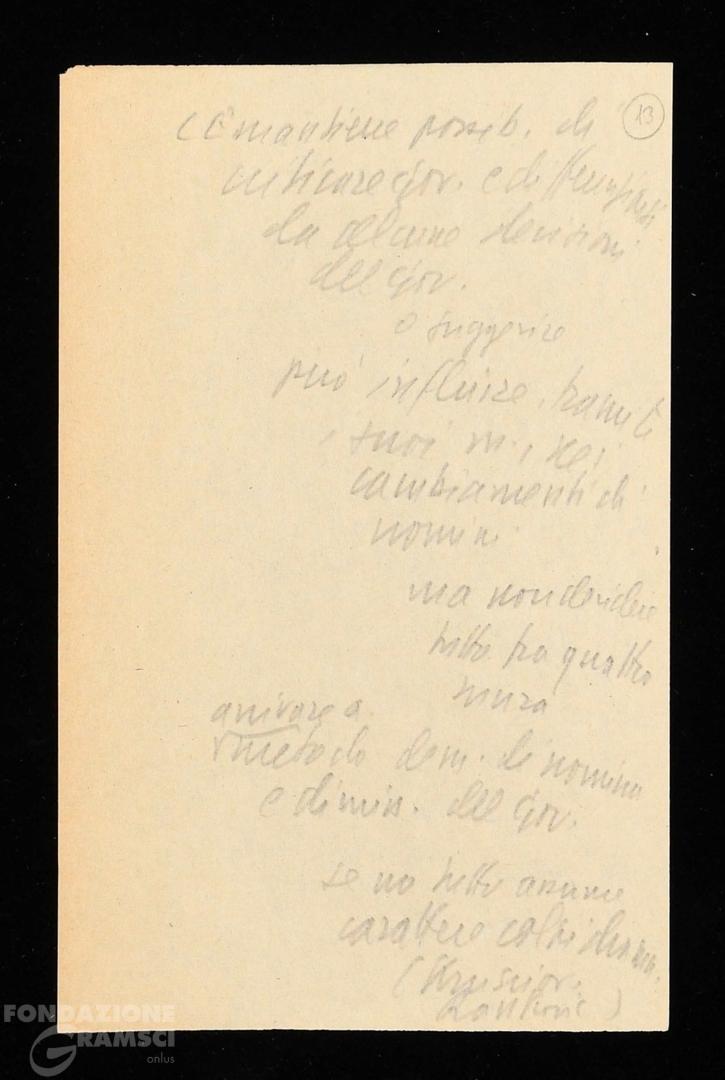 13
(E mantiene possib. di
criticare gov. e differenziarsi
da alcune decisioni
del gov.
o suggerire
può influire, tramite
i suoi m., nei
cambiamenti di
uomini
ma non decidere
tutto tra quattro
mura
arrivare a
metodo dem. di nomina
e dimiss. del gov.
se no tutto assume
carattere colpi di
(Krusciov.
Rankovic)
FONDAZIONE
GRAMSCI
onlus